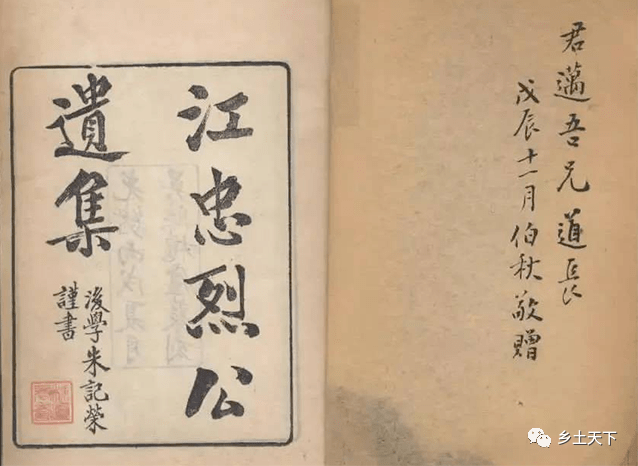 君邁吾兄道長
戊辰十一月伯秋敬贈
江忠烈公
遺集
後學朱記榮
謹書
乡土天下